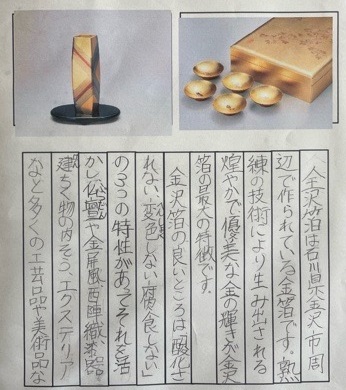 金沢箔は石川県金沢市周
辺で作られている金箔です。熟
練の技術により生み出される
煌やかで優美な金の輝きが金
箔の最大の特徴です。
金沢箔の良いところは「酸化さ
れない」「変色しない」「腐食しない」
の3つの特性があってそれを活
かし仏壇や金屏風、西陣織、漆器、
建ちく物の内そう、エクステリア
など多くの工芸品や美術品な